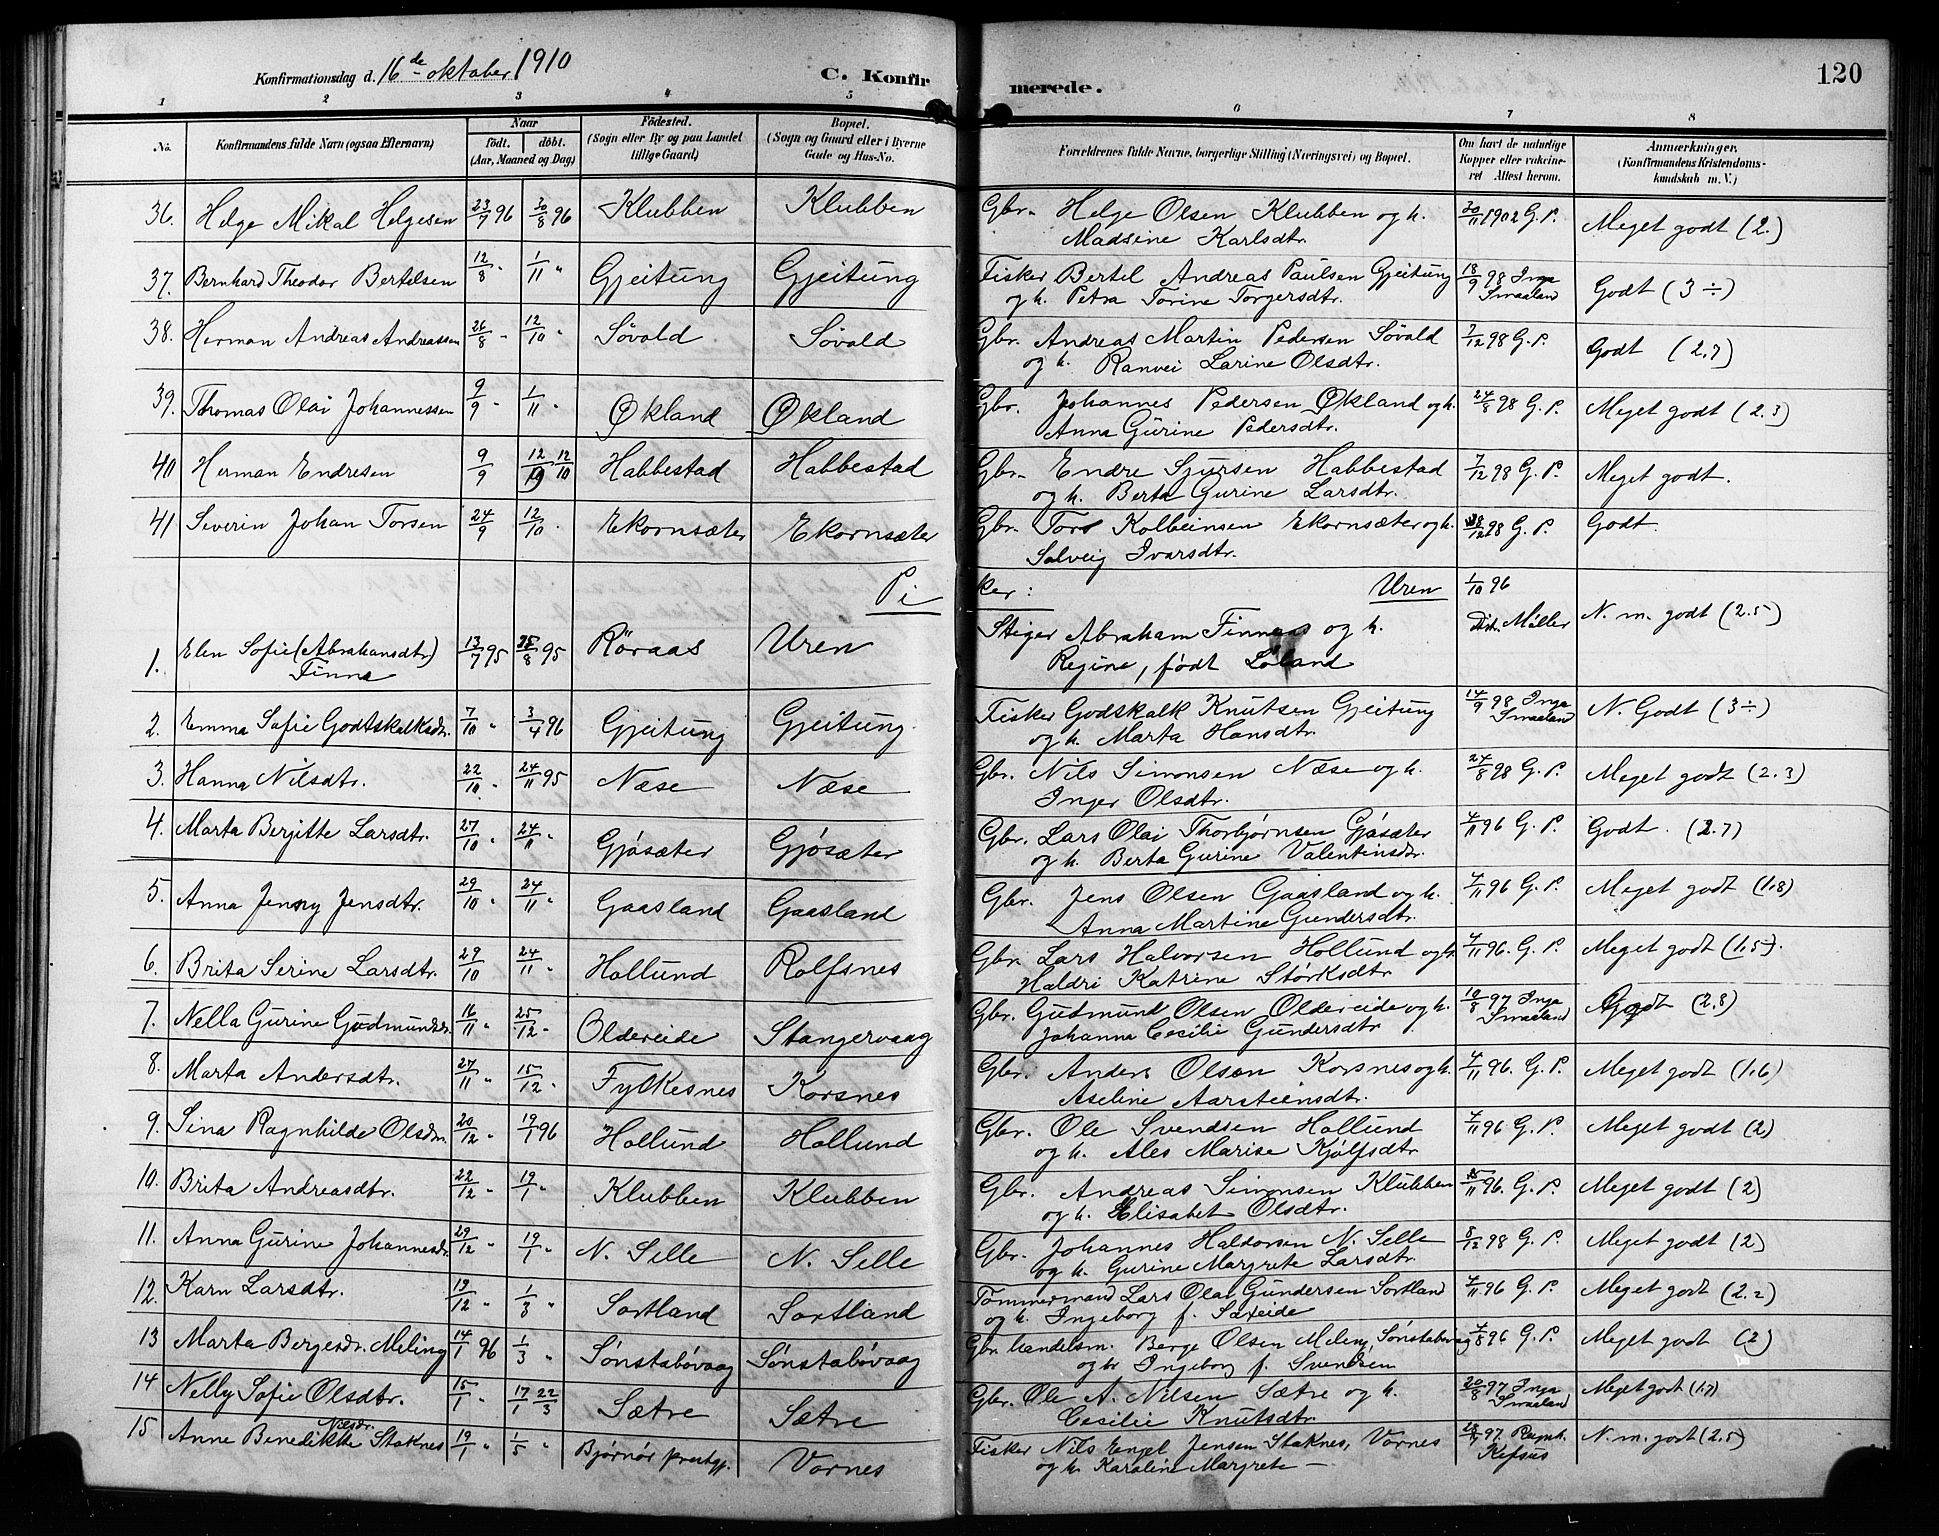 Konfirmationsdag d. 16de oktober 1910
C. Konfirmerede.
120
1 2 3 4 5 6 7 8
No.
Konfirmandens fulde Navn (ogsaa Efternavn)
Naar
födt. döbt.
(Aar, Maaned og Dag)
Födested.
(Sogn eller By og paa Landet
tillige Gaard)
Bopæl.
(Sogn og Gaard eller i Byerne
Gade og Hus-No.
Forældrenes fulde Navne, borgerlige Stilling (Næringsvei) og Bopæl.
Om havt de naturlige
Kopper eller vakcine-
ret Attest herom.
Anmærkninger.
(Konfirmandens Kristendoms-
kundskab m. V.)
36. Helge Mikal Helgesen 23/7 96 30/8 96 Klubben Klubben Gbr. Helge Olsen Klubben og h. 30/11 1902 G. P. Meget godt (2.)
Madseine Karlsdtr.
37. Bernhard Theodor Bertelsen 12/8 " 1/11 " Gjeitung Gjeitung Fisker Bertel Andreas Paulsen Gjeitung 18/9 98 Inga Godt (3 ÷)
og h. Petra Torine Torgersdtr. Imaeland
38. Herman Andreas Andreassen 26/8 " 12/10 " Søvold Søvold Gbr. Andreas Martin Pedersen Søvold 7/12 98 G. P. Godt (2.7)
og h. Ranvei Larine Olsdtr.
39. Thomas Olai Johannessen 9/9 " 1/11 " Økland Økland Gbr. Johannes Pedersen Økland og h. 24/8 98 G. P. Meget godt (2.3)
Anna Gurine Pedersdtr.
40 Herman Endresen 9/9 12/10 Habbestad Habbestad Gbr. Endre Sjursen Habbestad 7/12 98 G. P. Meget godt.
og h. Berta Gurine Larsdtr.
41 Severin Johan Torsen 24/9 12/10 " Ekornsæter Ekornsæter Gbr. Tore Kolbeinsen Ekornsæter og h. 98 G. P. Godt.
Solveig Ivarsdtr.
Piker:
1. Elen Sofie (Abrahamsdtr) Finne 13/7 95 25/8 95 Röraas Uren Stiger Abraham Finnaas og h. Uren 1/10 96 Dist. Møller N. m. godt (2.5)
Regine, født Løland
2. Emma Sofie Godtskalksdr. 7/10 " 3/4 96 Gjeitung Gjeitung. Fisker Godskalk Knutsen Gjeitung 14/9 98 Inga N. Godt (3 ÷)
og h. Marta Hansdtr. Imaeland
3. Hanna Nilsdtr. 22/10 " 24/11 95 Næse Næse Gbr. Nils Simonsen Næse og h. 24/8 98 G. P. Meget godt (2.3)
Inger Olsdtr.
4. Marta Bergitte Larsdtr. 27/10 " 24/11 " Gjøsæter Gjøsæter Gbr. Lars Olai Thorbjørnsen Gjøsæter 4/11 96 G. P. Godt. (2.7)
og h. Berta Gurine Valentinsdr.
5. Anna Jenny Jensdtr. 29/10 " 24/11 " Gaasland Gaasland Gbr. Jens Olsen Gaasland og h. 4/11 96 G. P. Meget godt (1.8)
Anna Martine Gundersdtr.
6. Brita Serine Larsdtr. 29/10 24/11 " Hollund Rolfsnes Gbr. Lars Halvorsen Hollund og h. 4/11 96. G. P. Meget godt (1.5).
Haldri Katrine Størksdtr
7. Nella Gurine Gudmundsdr. 16/11 " 25/12 " Oldereide Stangervaag Gbr. Gudmund Olsen Oldereide og h. 10/8 97 Inga Godt (2.8)
Johanna Cecilie Gundersdtr Imaeland
8. Marta Andersdtr. 27/11 " 15/12 " Fylkesnes Korsnes Gbr. Anders Olsen Korsnes og h. 4/11 96. G. P. Meget godt (1.6)
Aseline Aarsteinsdtr.
9. Sina Ragnhilde Olsdr. 20/12 " 19/1 96 Hollund Hollund Gbr. Ole Svendsen Hollund 4/11 96 G. P. Meget godt (2)
og h. Ales Marise Kjølfsdtr
10. Brita Andreasdtr. 22/12 " 19/1 " Klubben Klubben Gbr. Andreas Simonsen Klubben 96. G. P. Meget godt (2)
og h. Elisabet Olsdtr.
11. Anna Gurine Johannesdr. 29/12 " 19/1 " N. Selle N. Selle Gbr. Johannes Haldorsen N. Selle 8/12 98 G. P. Meget godt (2)
og h. Gurine Margrete Larsdtr.
12. Karn Larsdtr. 19/12 " 1/3 " Sortland Sortland Tømmermand Lars Olai Gundersen Sortland 4/11 96 G. P. Meget godt (2.2)
og h. Ingeborg f. Saxeide
13 Marta Bergesdr. Meling 14/1 96 1/3 " Sønstabøvaag Sønstabøvaag Gbr. handelsm. Berge Olsen Meling, Sønstabøvaag 4/8 96 G. P. Meget godt (2)
og h. Ingeborg f. Svendsen
14 Nelly Sofie Olsdtr. 15/1 " 17/1 22/3 Sætre Sætre Gbr. Ole A. Nilsen Sætre og h. 20/8 97 Inga Meget godt (1.7)
Cecilie Knutsdtr. Imaeland
15 Anne Benedikte Nilsdr. Stoknes 19/1 " 1/5 " Bjørnør prestgj. Vornes Fisker Nils Engel Jensen Stoknes, Vornes 97. Ragnh. N. m. godt (2.5)
og h. Karoline Margrete — Refsnes